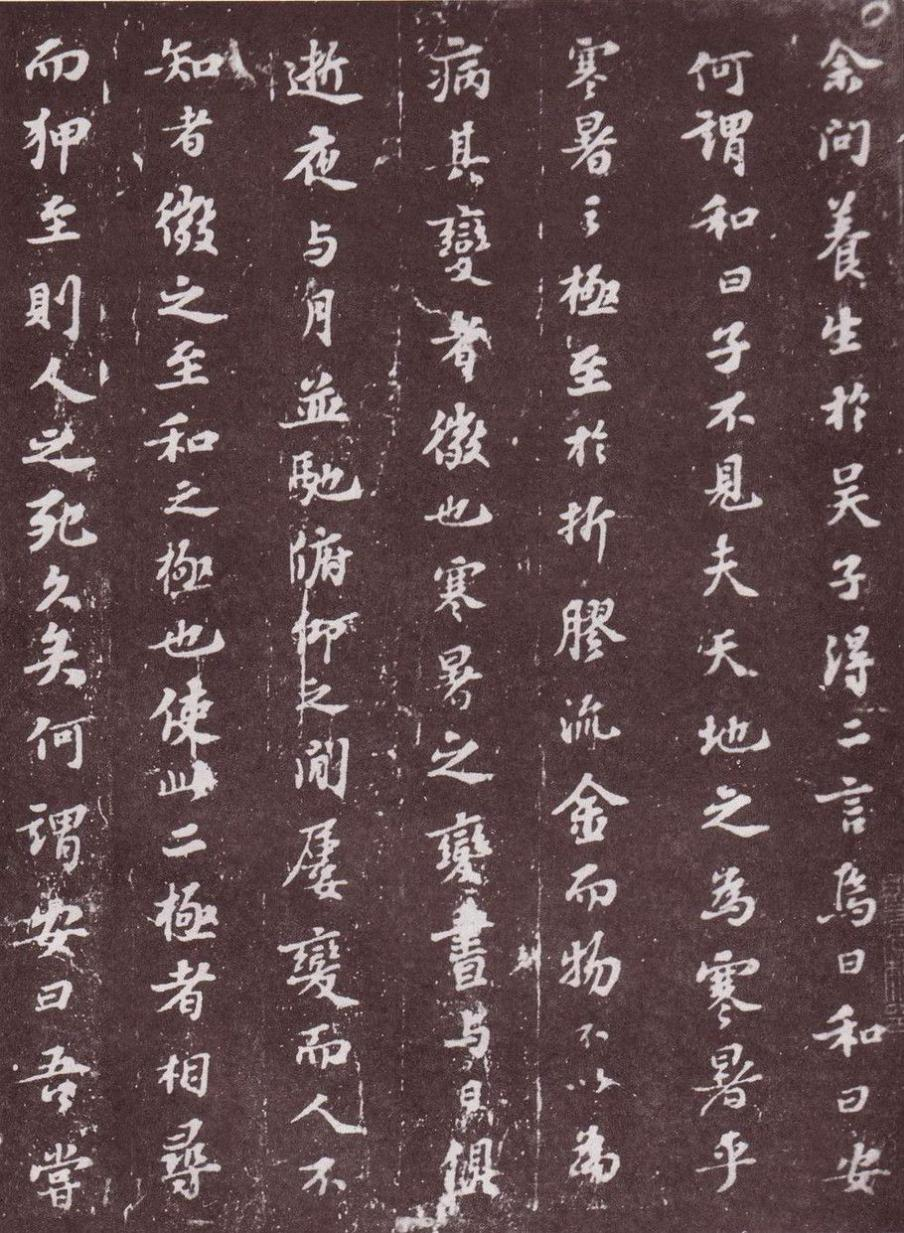 余問養生於吴子得二言焉曰和曰安
何謂和曰子不見夫天地之為寒暑乎
寒暑之極至於折膠流金而物不以為
病其變者微也寒暑之變晝与日俱
逝夜与月並馳俯仰之間屢變而人不
知者微之至和之極也使此二極者相尋
而狎至則人之死久矣何謂安曰吾嘗